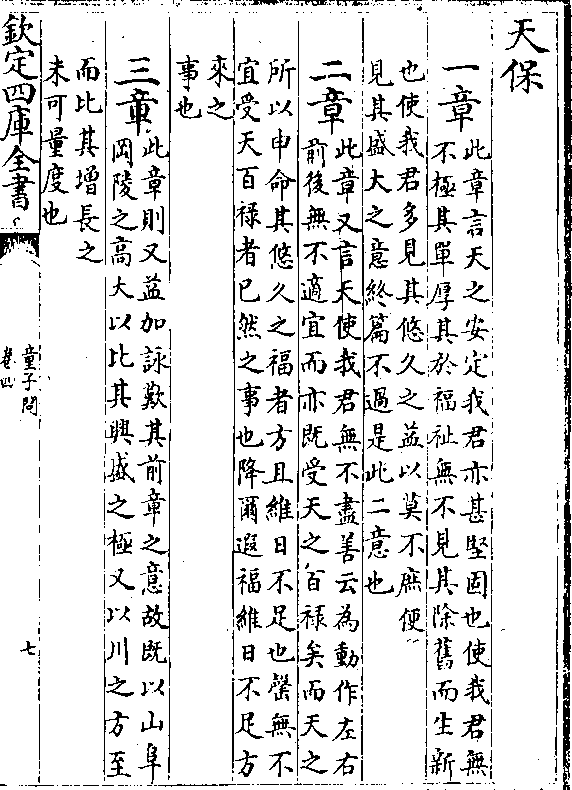 天保
一章
此章言天之安定我君亦甚堅固也使我君無
不極其單厚其於福祉無不見其除舊而生新
也使我君多見其悠久之益以莫不庶便
見其盛大之意終篇不過是此二意也
二章
此章又言天使我君無不盡善云為動作左右
前後無不適宜而亦既受天之百祿矣而天之
所以申命其悠久之福者方且維日不足也罄無不
宜受天百祿者已然之事也降爾遐福維日不足方
來之
事也
三章
此章則又益加詠歎其前章之意故既以山阜
岡陵之高大以比其興盛之極又以川之方至
而比其增長之
未可量度也
欽定四庫全書
童子問
卷四
七